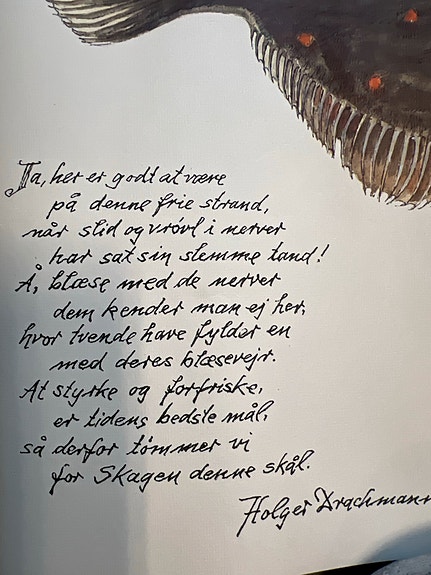 Ja, her er godt at være
på denne frie strand,
når slid og vrøvl i nerver
har sat sin slemme tand!
Å, blæse med de nerver
dem kender man ej her,
hvor tvende have fylder en
med deres blæsevejr.
At styrke og forfriske,
er tidens bedste mål,
så derfor tømmer vi
for Skagen denne skål.
Holger Drachmann